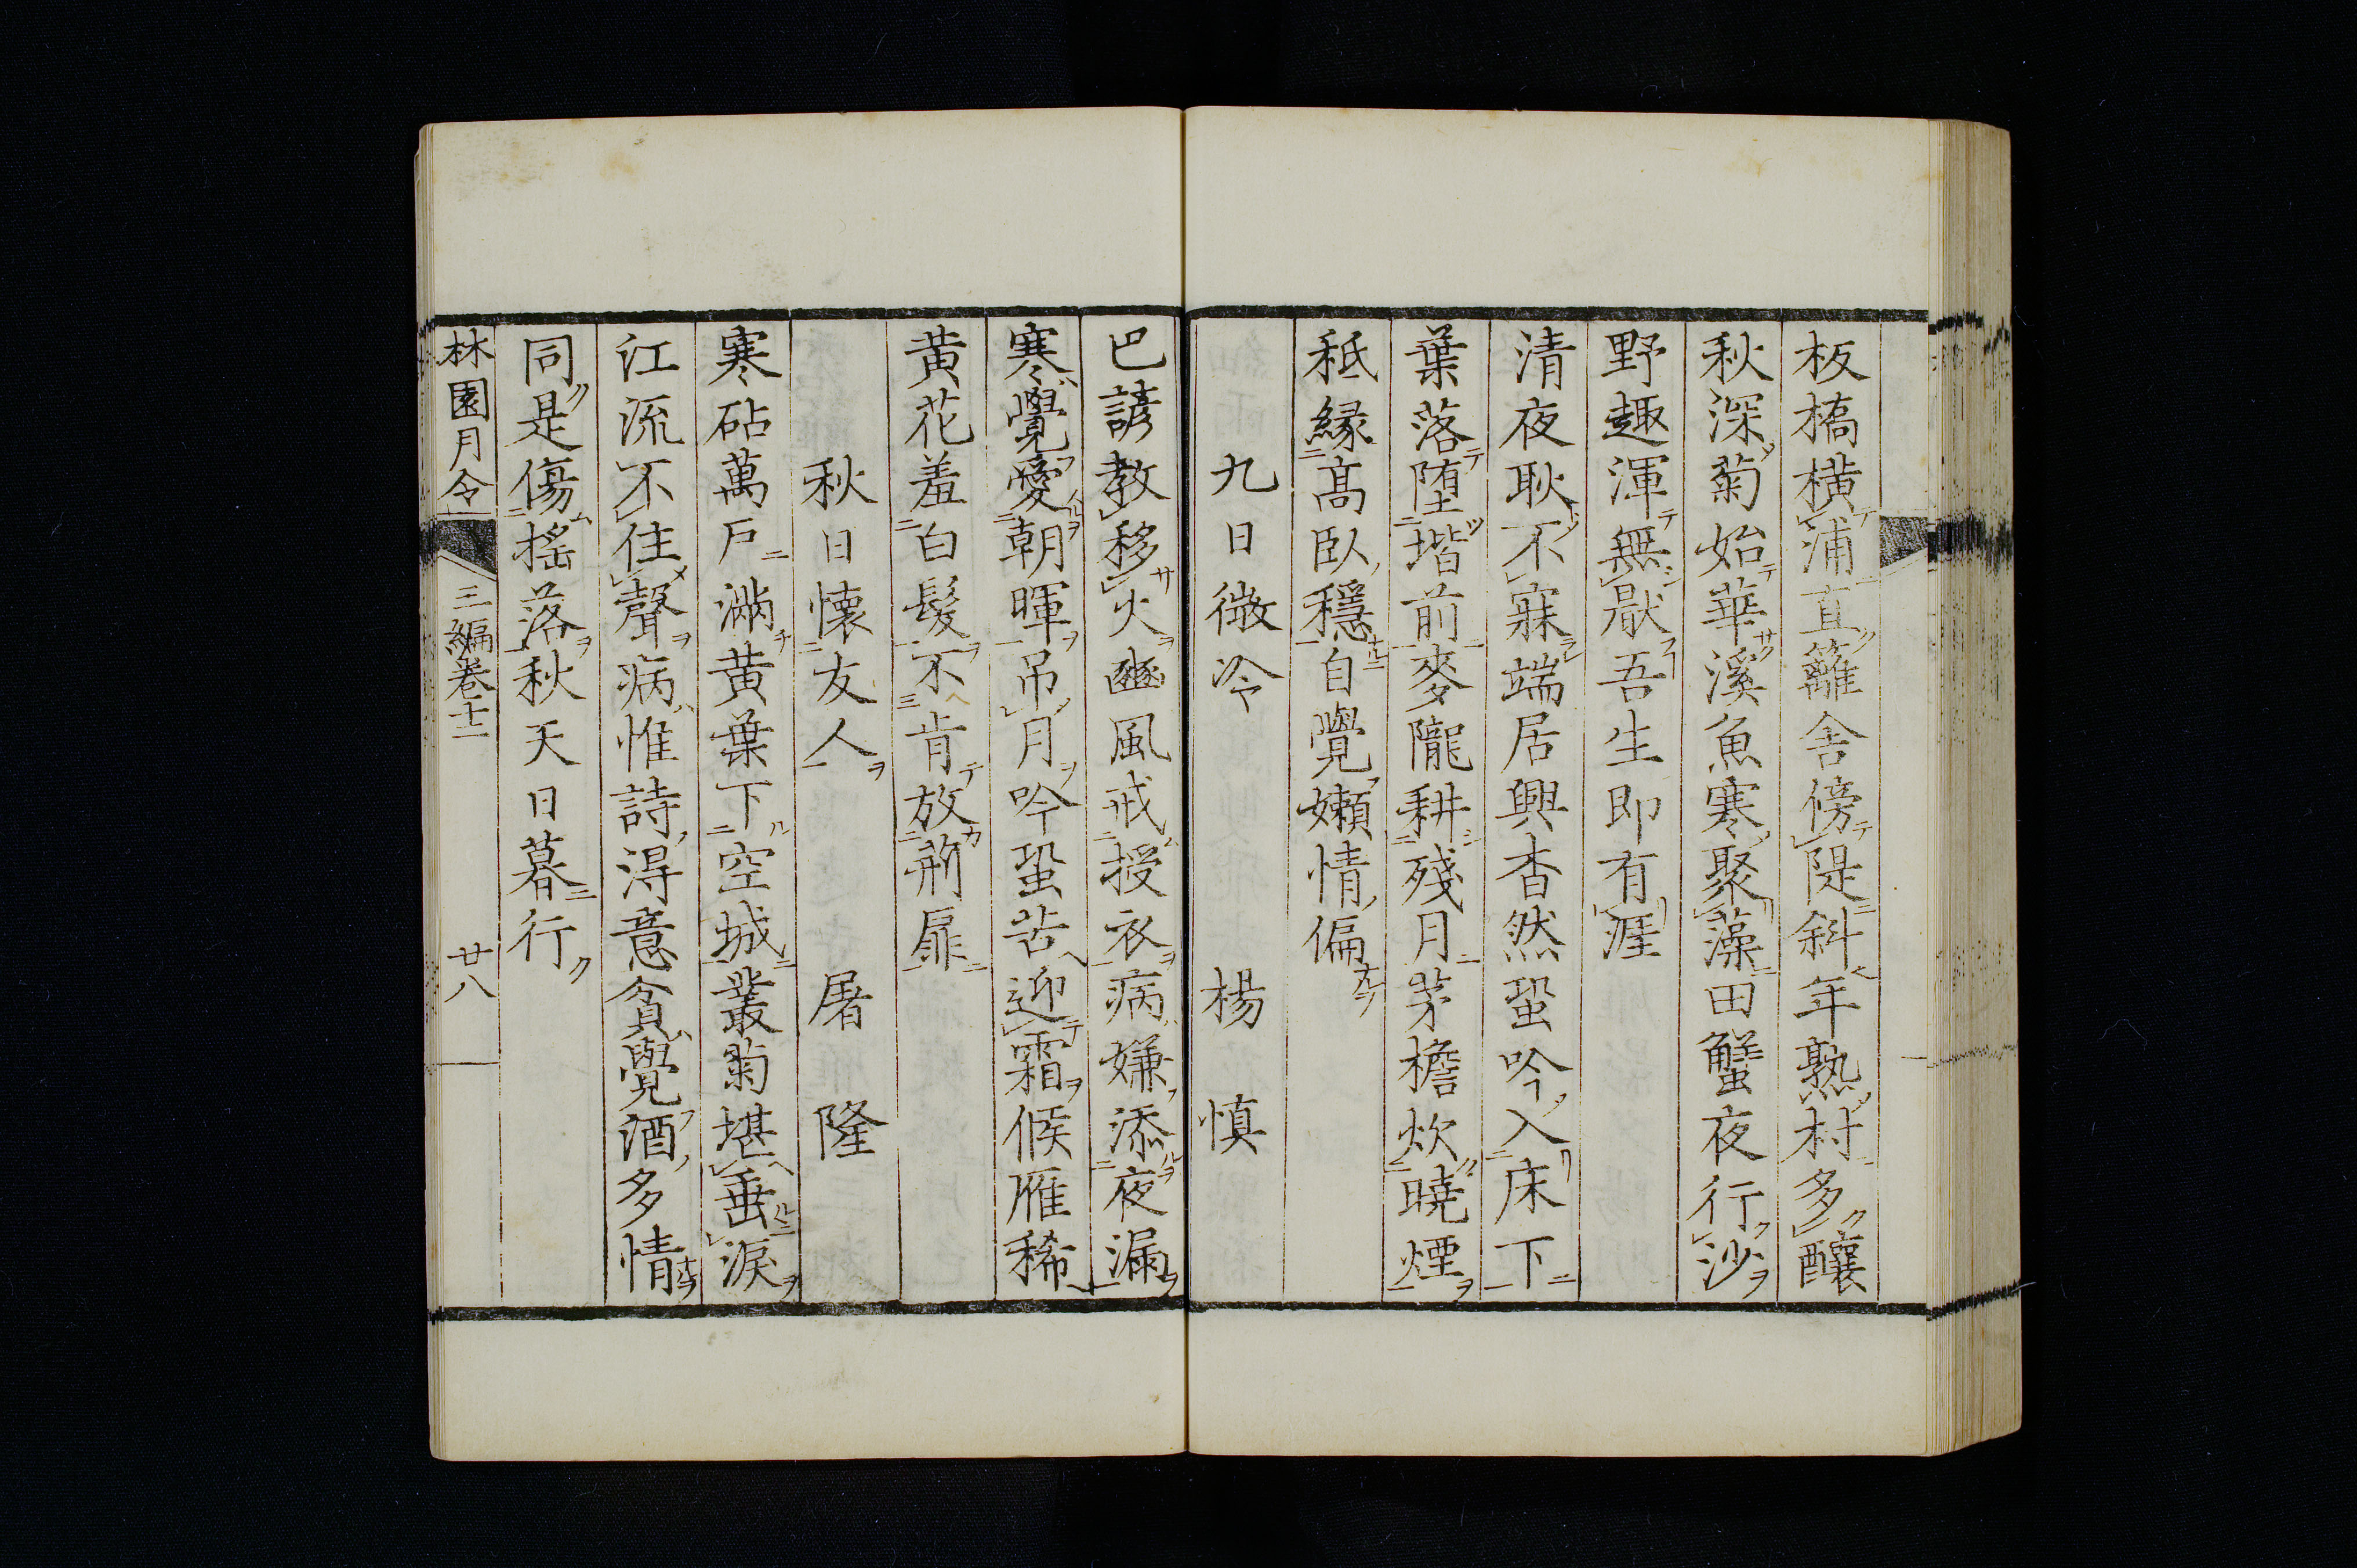 板橋橫蒲直籬舍傍隄斜年熟村多釀
秋深菊始華溪魚寒聚藻田蟹夜行沙
野趣渾無厭吾生即有涯
清夜耿不寐端居興杳然蛩吟入床下
葉落墮堦前麥隴耕殘月茅檐炊曉煙
秪緣高臥穩自覺嬾情偏
九日微冷　楊慎
巴諺教移火豳風戒授衣病嫌添夜漏
寒覺愛朝暉吊月吟蛩苦迎霜候雁稀
黄花羞白髪不肯放荊扉
秋日懷友人　屠隆
寒砧萬戶滿黄葉下空城叢菊堪垂淚
江流不住聲病惟詩得意貧覺酒多情
同是傷搖落秋天日暮行
林園月令　三編卷十二　廿八